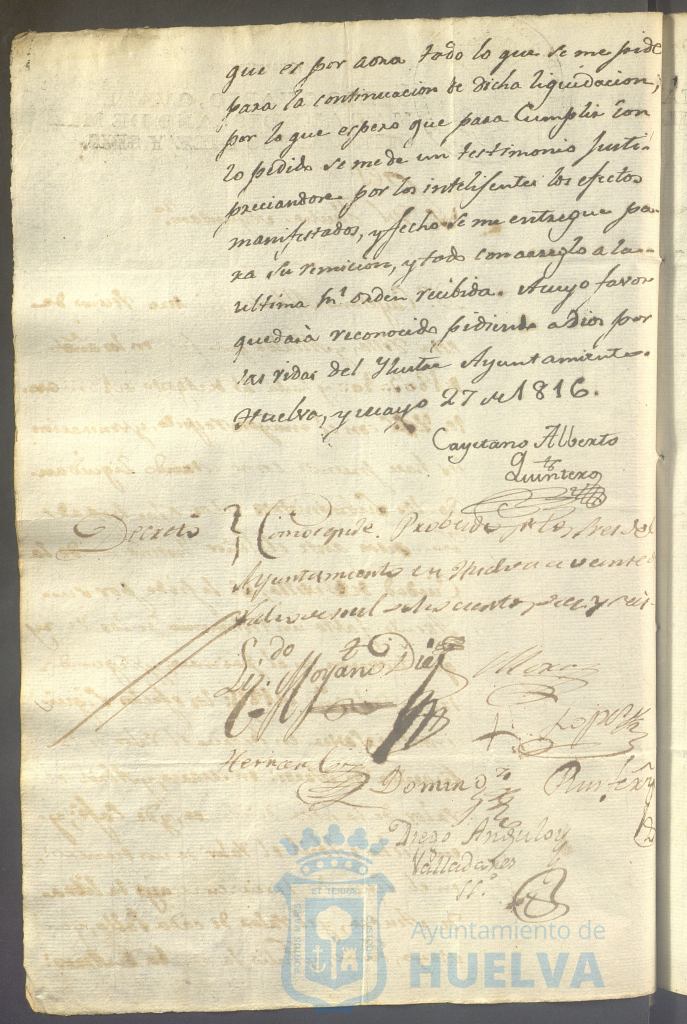 que es por aora todo lo que se me pide
para la continuacion de dicha liquidacion,
por lo que espero que para Cumplir con
lo pedido se me de un testimonio Justi-
preciandose por los intelisentes los efectos
manifestados, y fecho se me entregue pa-
ra su remicion, y todo con arreglo a la
ultima Rl orden recibida. Cuyo favor
quedará reconocido pidiendo a Dios por
las vidas del Ylustre Ayuntamiento.
Huelva, y mayo 27 de 1816.
Cayetano Alberto
Quintero
Decreto
Ayuntamiento en Huelva a veinte
Ldo Moyano Diaz
Lopez
Hernan
Domingo
Diego Angulo y
Valladares
SSº
ET TERRAE
CUSTODIA
Ayuntamiento de
HUELVA